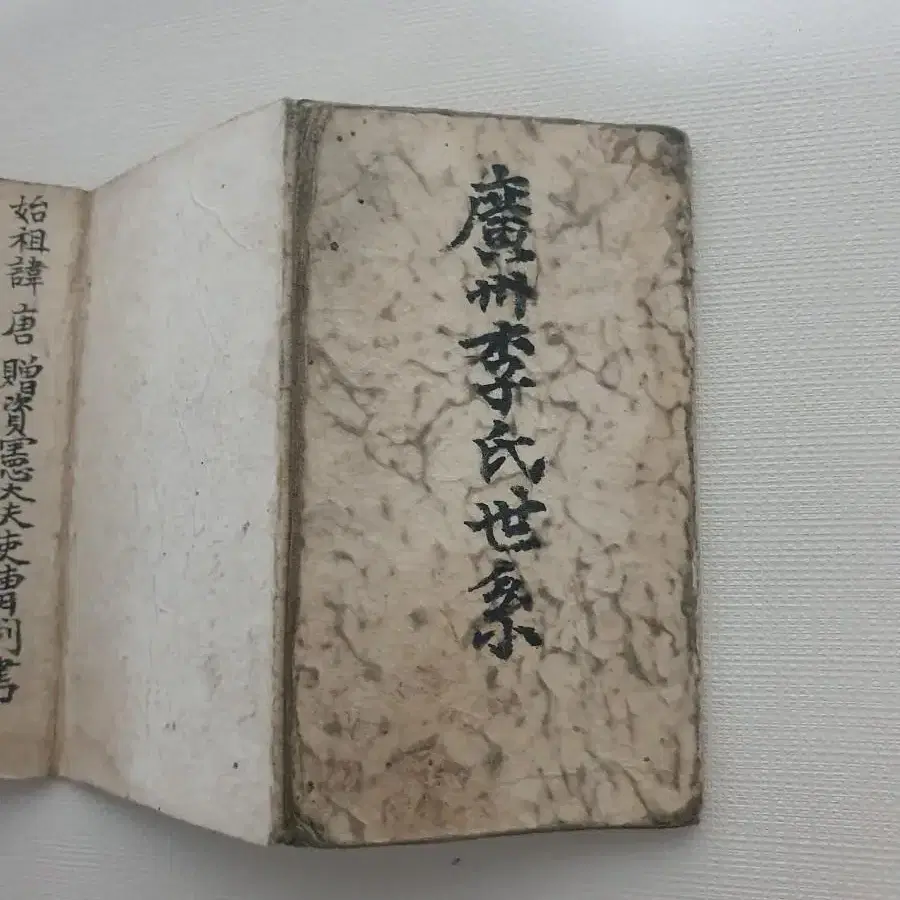 廣州李氏世系
始祖諱 唐 贈資憲大夫吏曹判書